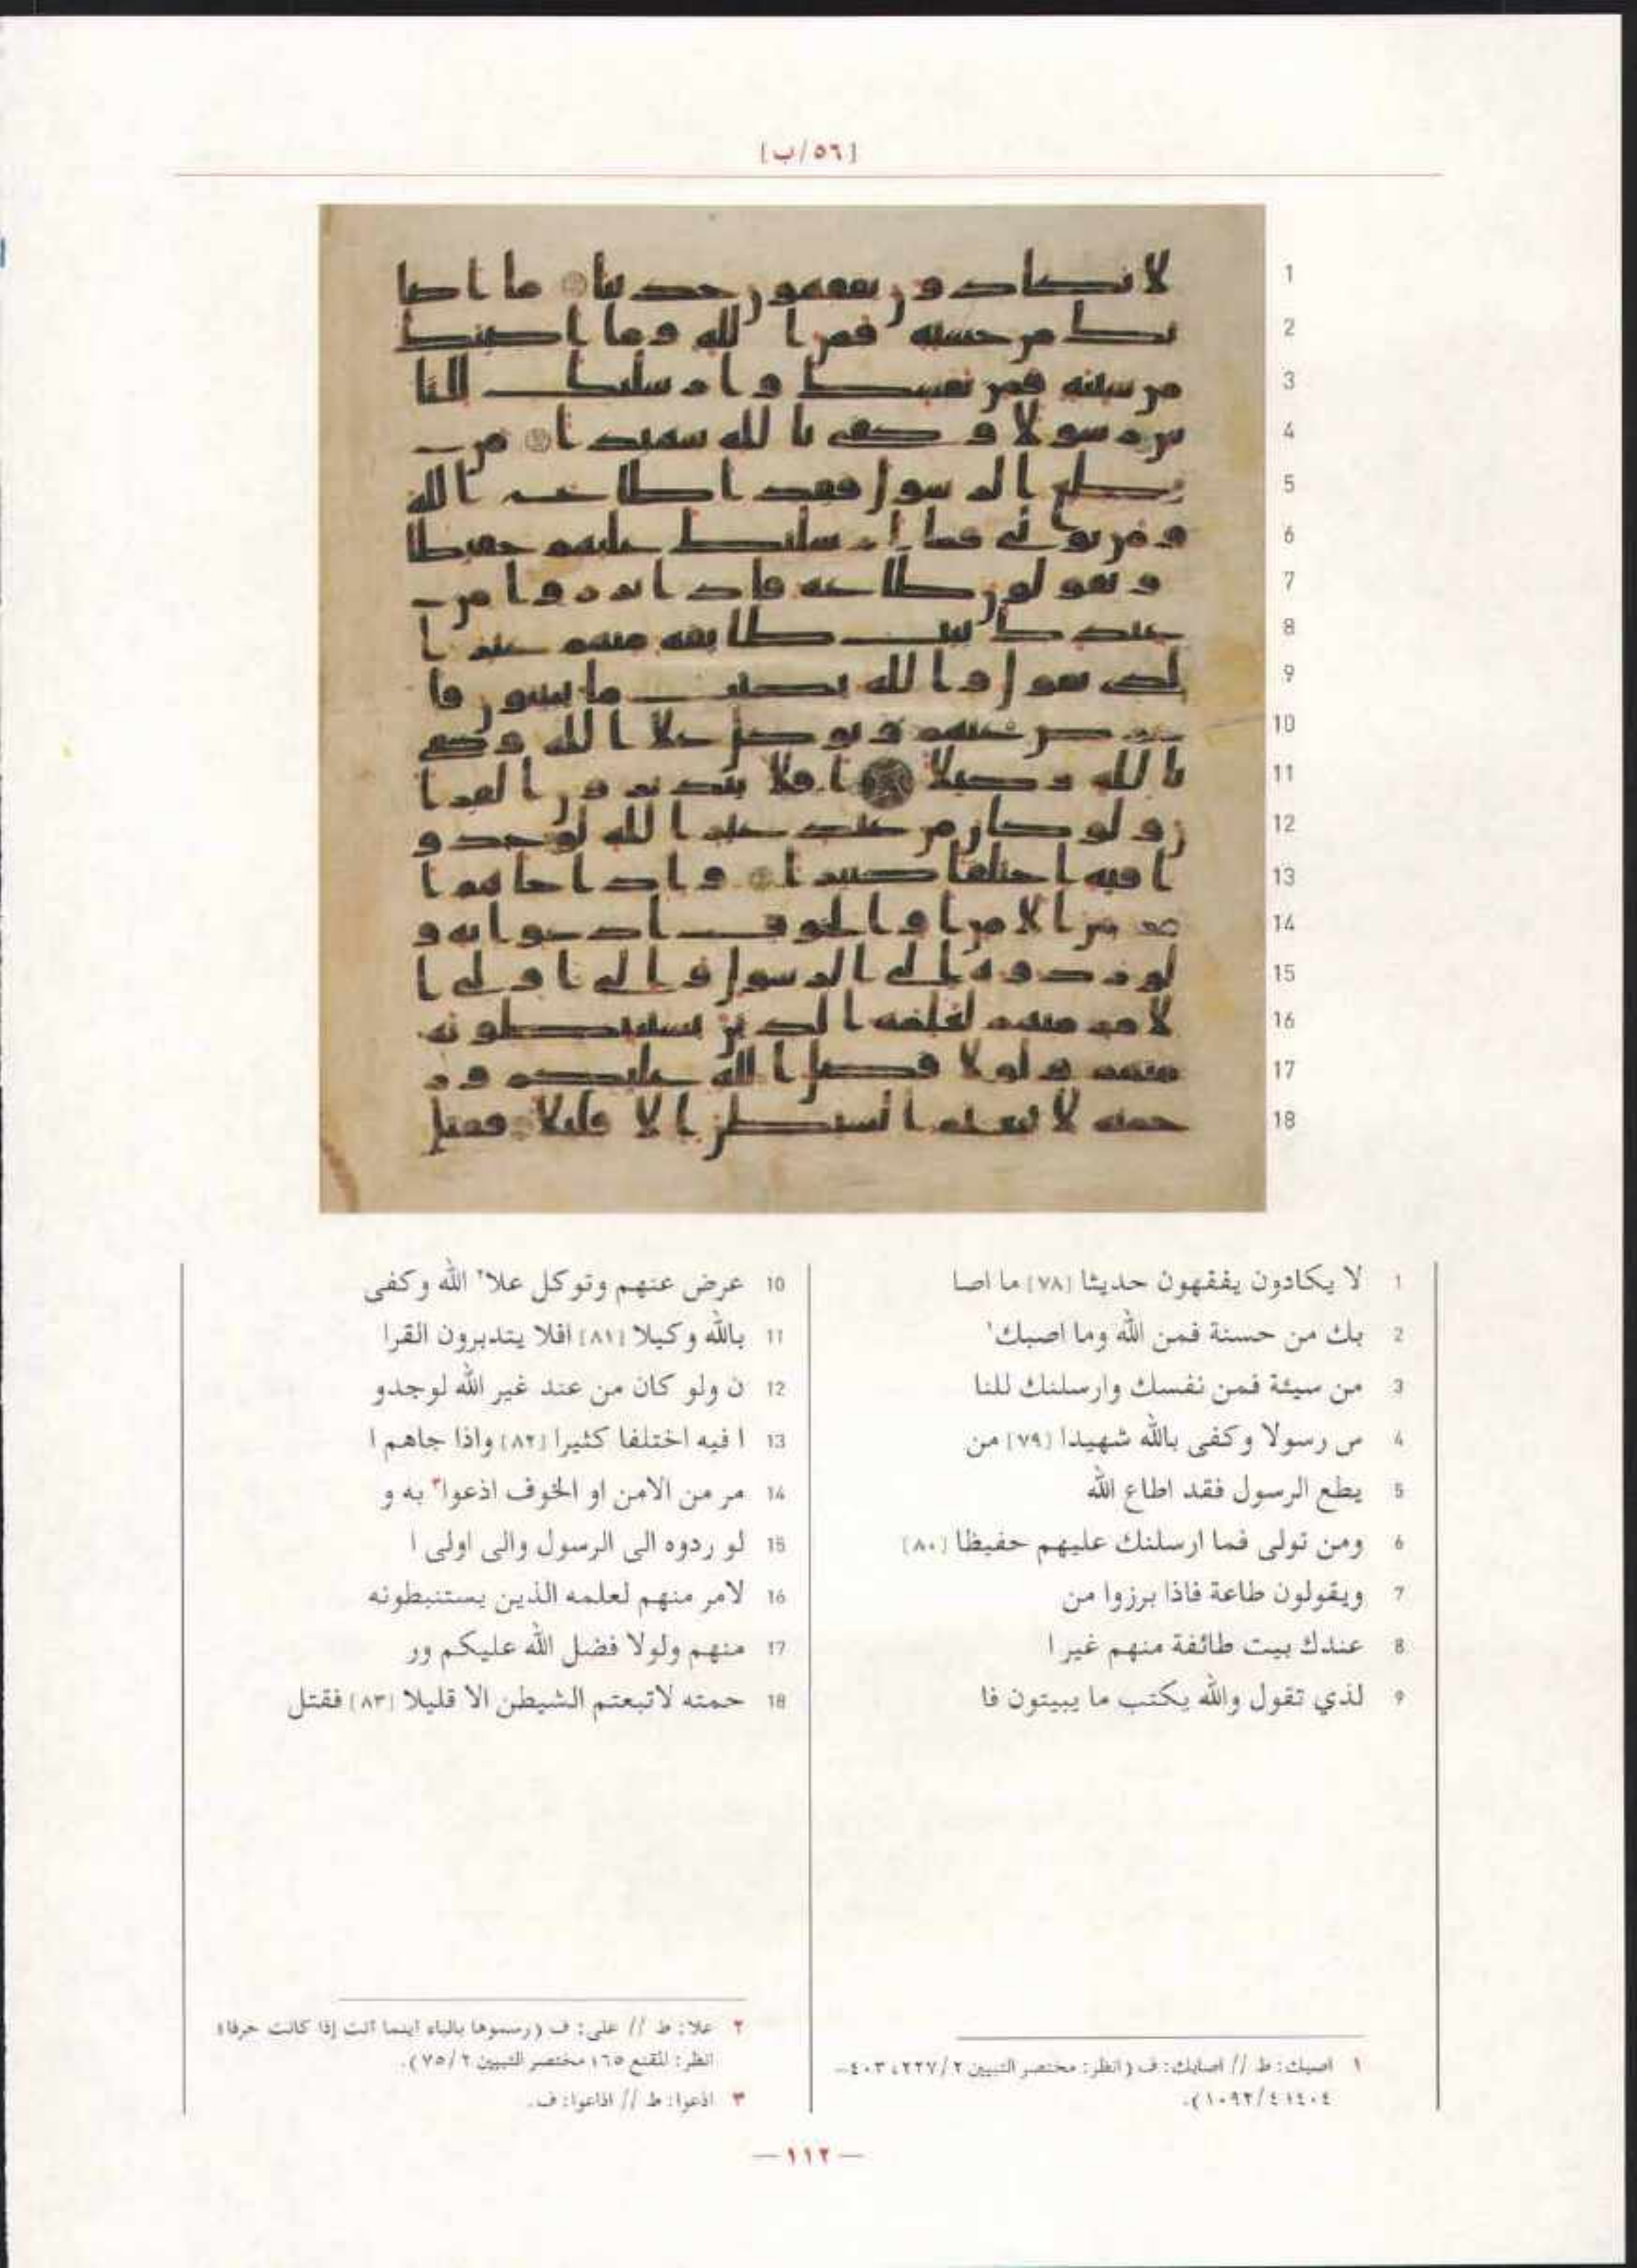 [٥٦/ب]
1
2
3
4
5
6
7
8
9
10
11
12
13
14
15
16
17
18
1 لا يكادون يفقهون حديثا [٧٨] ما اصا
2 بك من حسنة فمن الله وما اصبك١
3 من سيئة فمن نفسك وارسلنك للنا
4 س رسولا وكفى بالله شهيدا [٧٩] من
5 يطع الرسول فقد اطاع الله
6 ومن تولى فما ارسلنك عليهم حفيظا [٨٠]
7 ويقولون طاعة فاذا برزوا من
8 عندك بيت طائفة منهم غير ا
9 لذي تقول والله يكتب ما يبيتون فا
10 عرض عنهم وتوكل علا٢ الله وكفى
11 بالله وكيلا [٨١] افلا يتدبرون القرا
12 ن ولو كان من عند غير الله لوجدو
13 ا فيه اختلفا كثيرا [٨٢] واذا جاهم ا
14 مر من الامن او الخوف اذعوا٣ به و
15 لو ردوه الى الرسول والى اولى ا
16 لامر منهم لعلمه الذين يستنبطونه
17 منهم ولولا فضل الله عليكم ور
18 حمته لاتبعتم الشيطن الا قليلا [٨٣] فقتل
١ اصبك: ط // اصابك: ف (انظر: مختصر التبيين ٢/٢٢٧، ٤٠٣-
٤٠٤؛ ٤/١٠٩٢).
٢ علا: ط // على: ف (رسموها بالياء أينما أتت إذا كانت حرفا؛
انظر: المقنع ٦٥؛ مختصر التبيين ٢/٧٥).
٣ اذعوا: ط // اذاعوا: ف.
— ١١٢ —